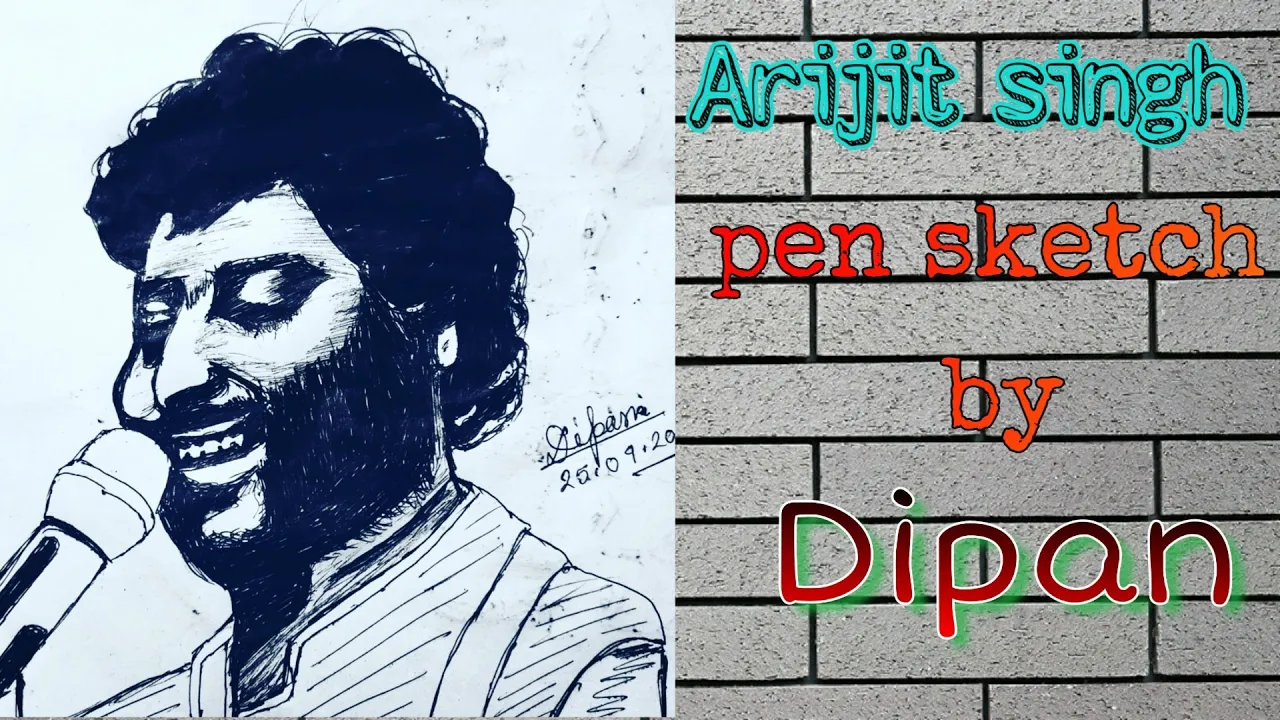 Dipan
25.09.20
Arijit singh
pen sketch
by
Dipan